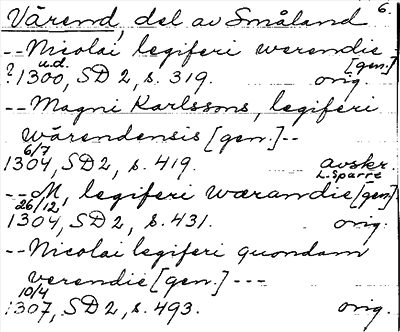 Värend, del av Småland 6.
--Nicolai legiferi werendie
[gen.]
u.d.
?1300, SD 2, s. 319. orig.
--Magni Karlssons, legiferi
wärendensis [gen.]--
6/7
1304, SD 2, s. 419. avskr.
L. Sparre
--M, legiferi wærandie [gen.]
26/12
1304, SD 2, s. 431. orig.
--Nicolai legiferi quondam
verendie [gen.] ---
10/4
1307, SD 2, s. 493. orig.